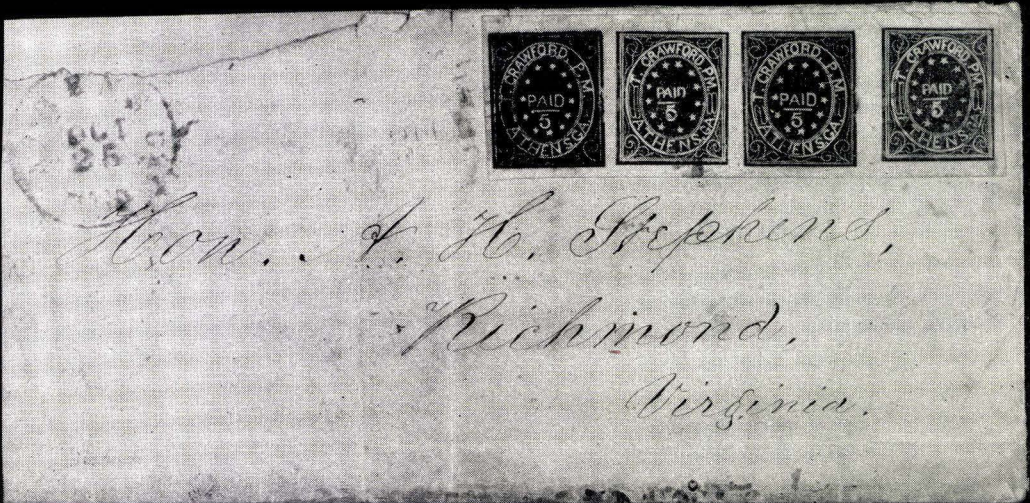 T. CRAWFORD, P.M.
PAID
5
ATHENS, GA.
T. CRAWFORD, P.M.
PAID
5
ATHENS, GA.
T. CRAWFORD, P.M.
PAID
5
ATHENS, GA.
T. CRAWFORD, P.M.
PAID
5
ATHENS, GA.
OCT
25
Hon. A. H. Stephens,
Richmond,
Virginia.